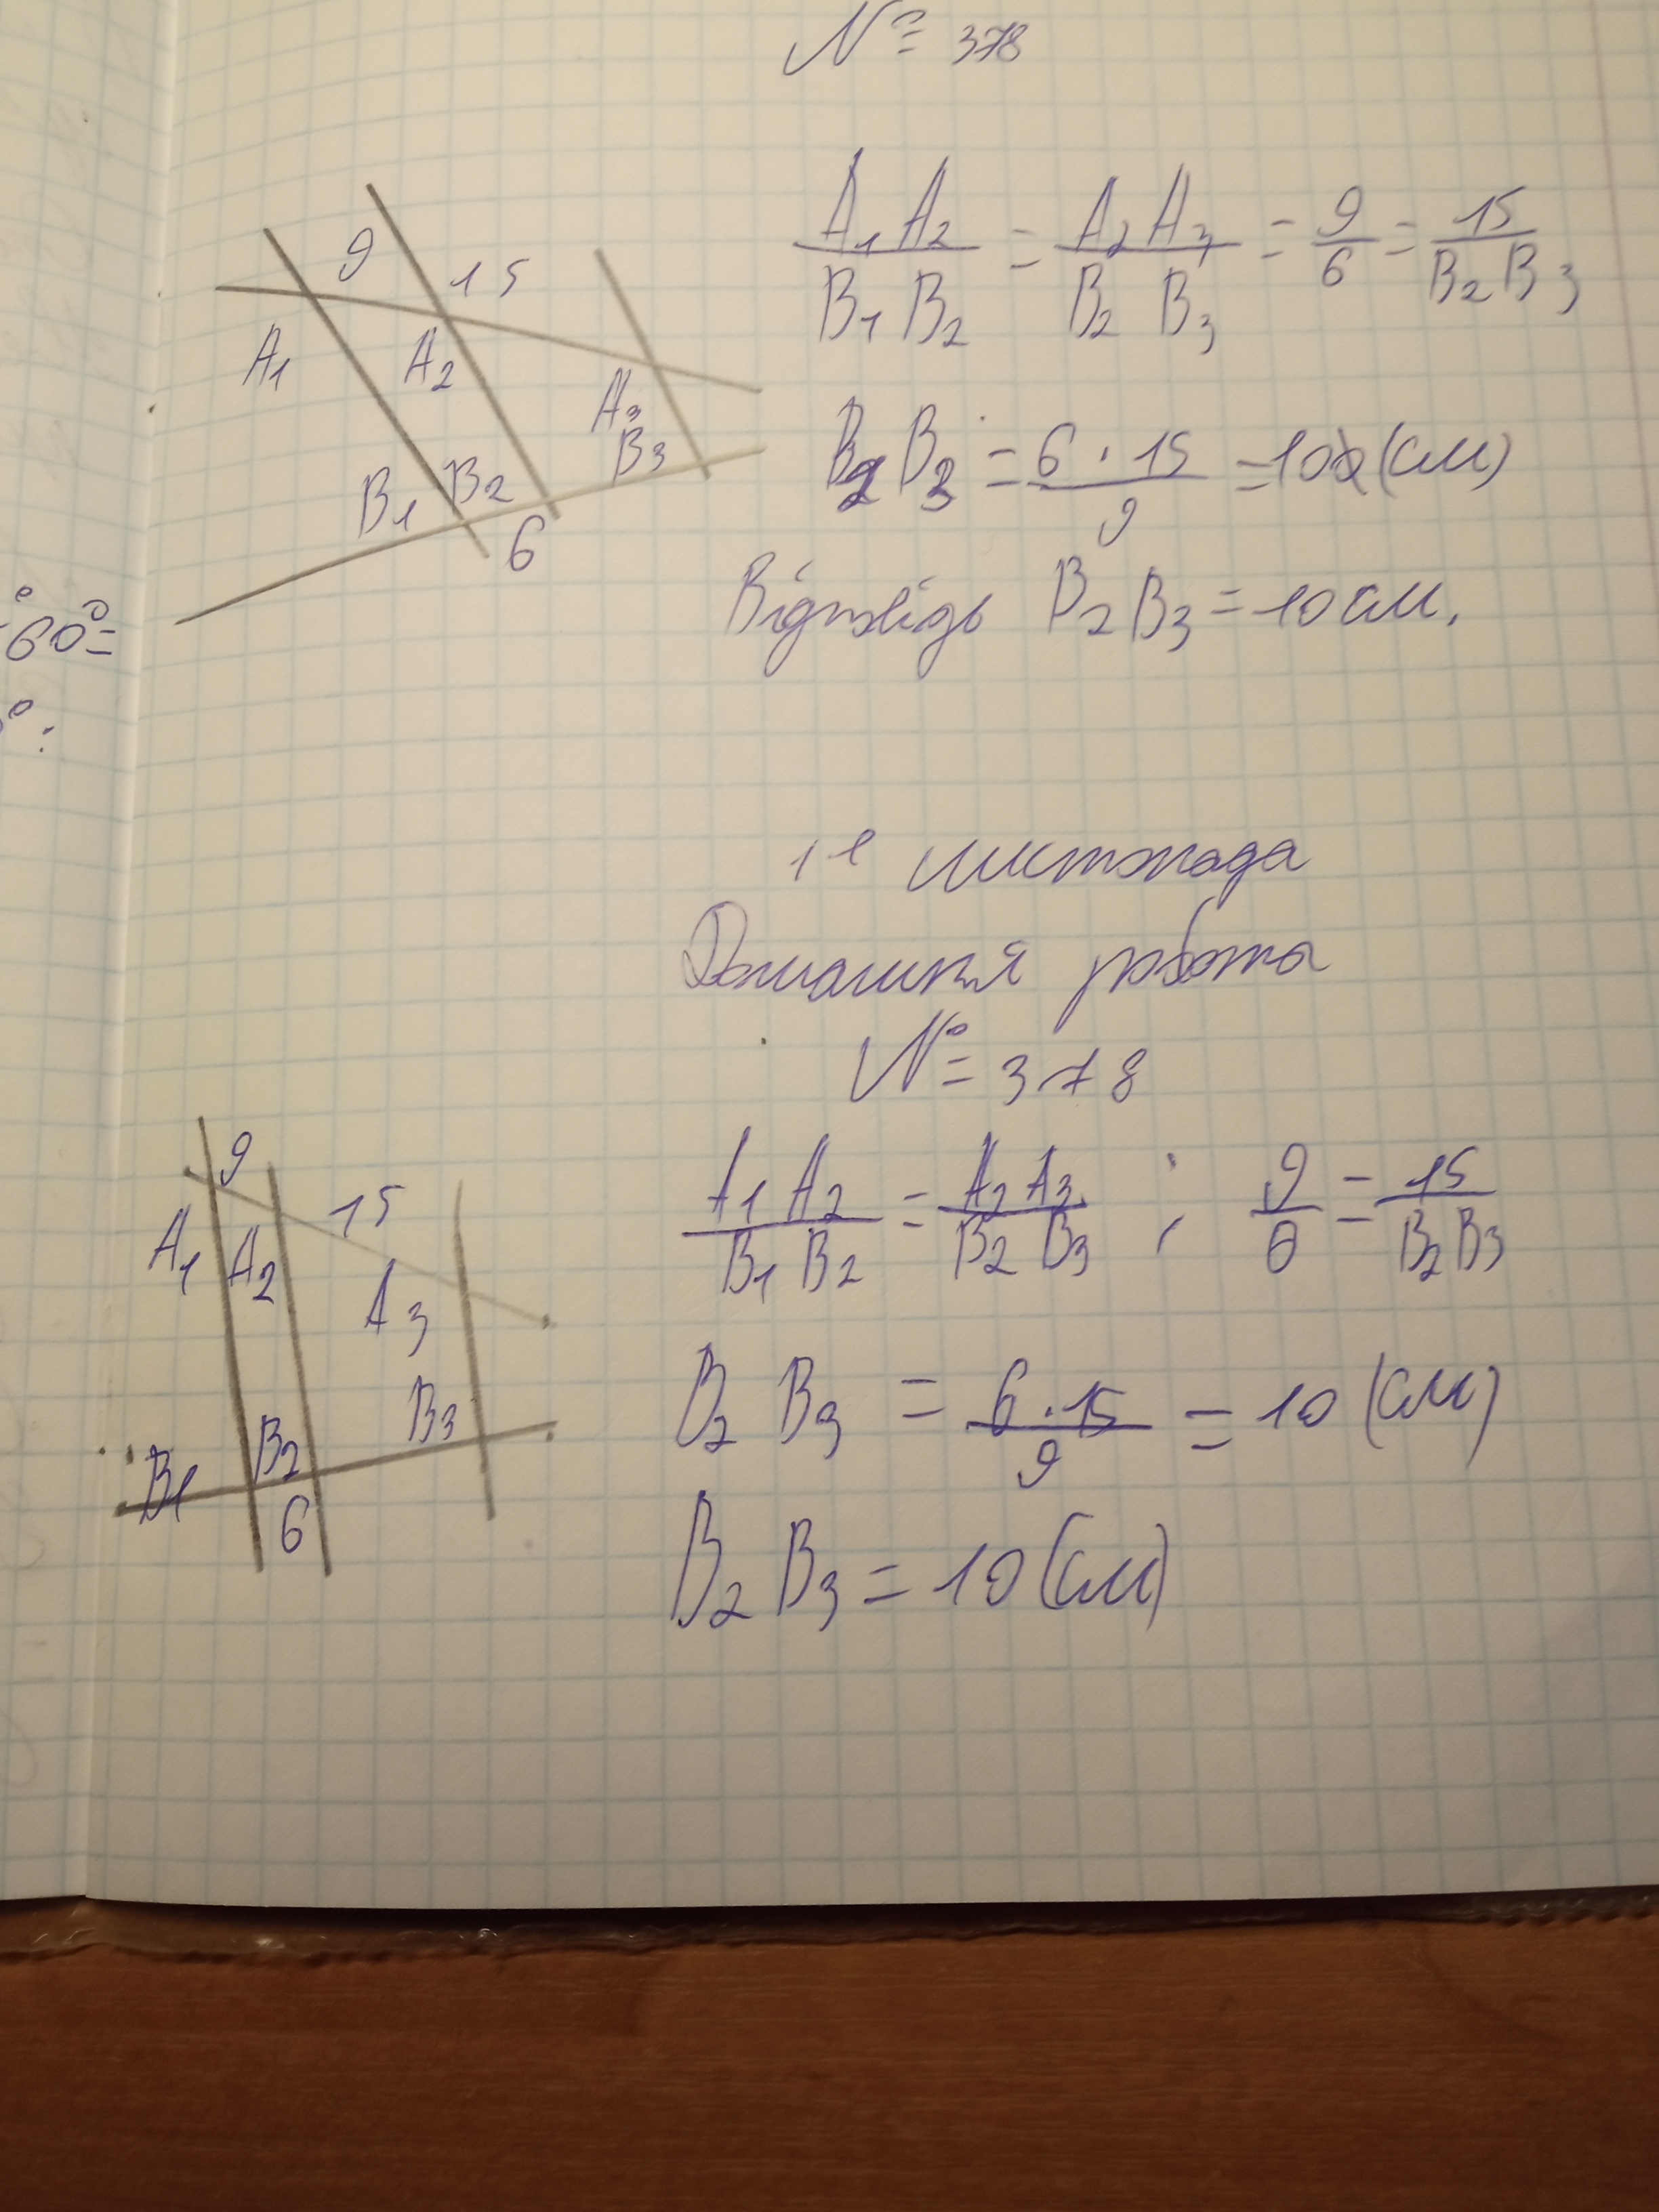 № 378
9
15
A₁ A₂
A₃
B₃
B₁ B₂
6
A₁A₂/B₁B₂ = A₂A₃/B₂B₃ = 9/6 = 15/B₂B₃
B₂B₃ = 6 · 15/9 = 10 (см)
Відповідь B₂B₃ = 10 см.
60°=
листопада
Домашня робота
№ 378
9
15
A₁ A₂
A₃
B₃
B₁ B₂
6
A₁A₂/B₁B₂ = A₂A₃/B₂B₃ ; 9/6 = 15/B₂B₃
B₂B₃ = 6 · 15/9 = 10 (см)
B₂B₃ = 10 (см)